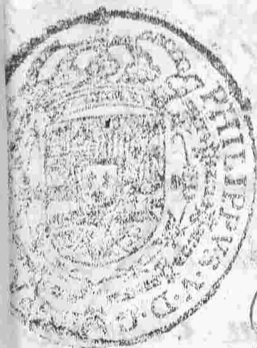 PHILIPPVS·V·D·G